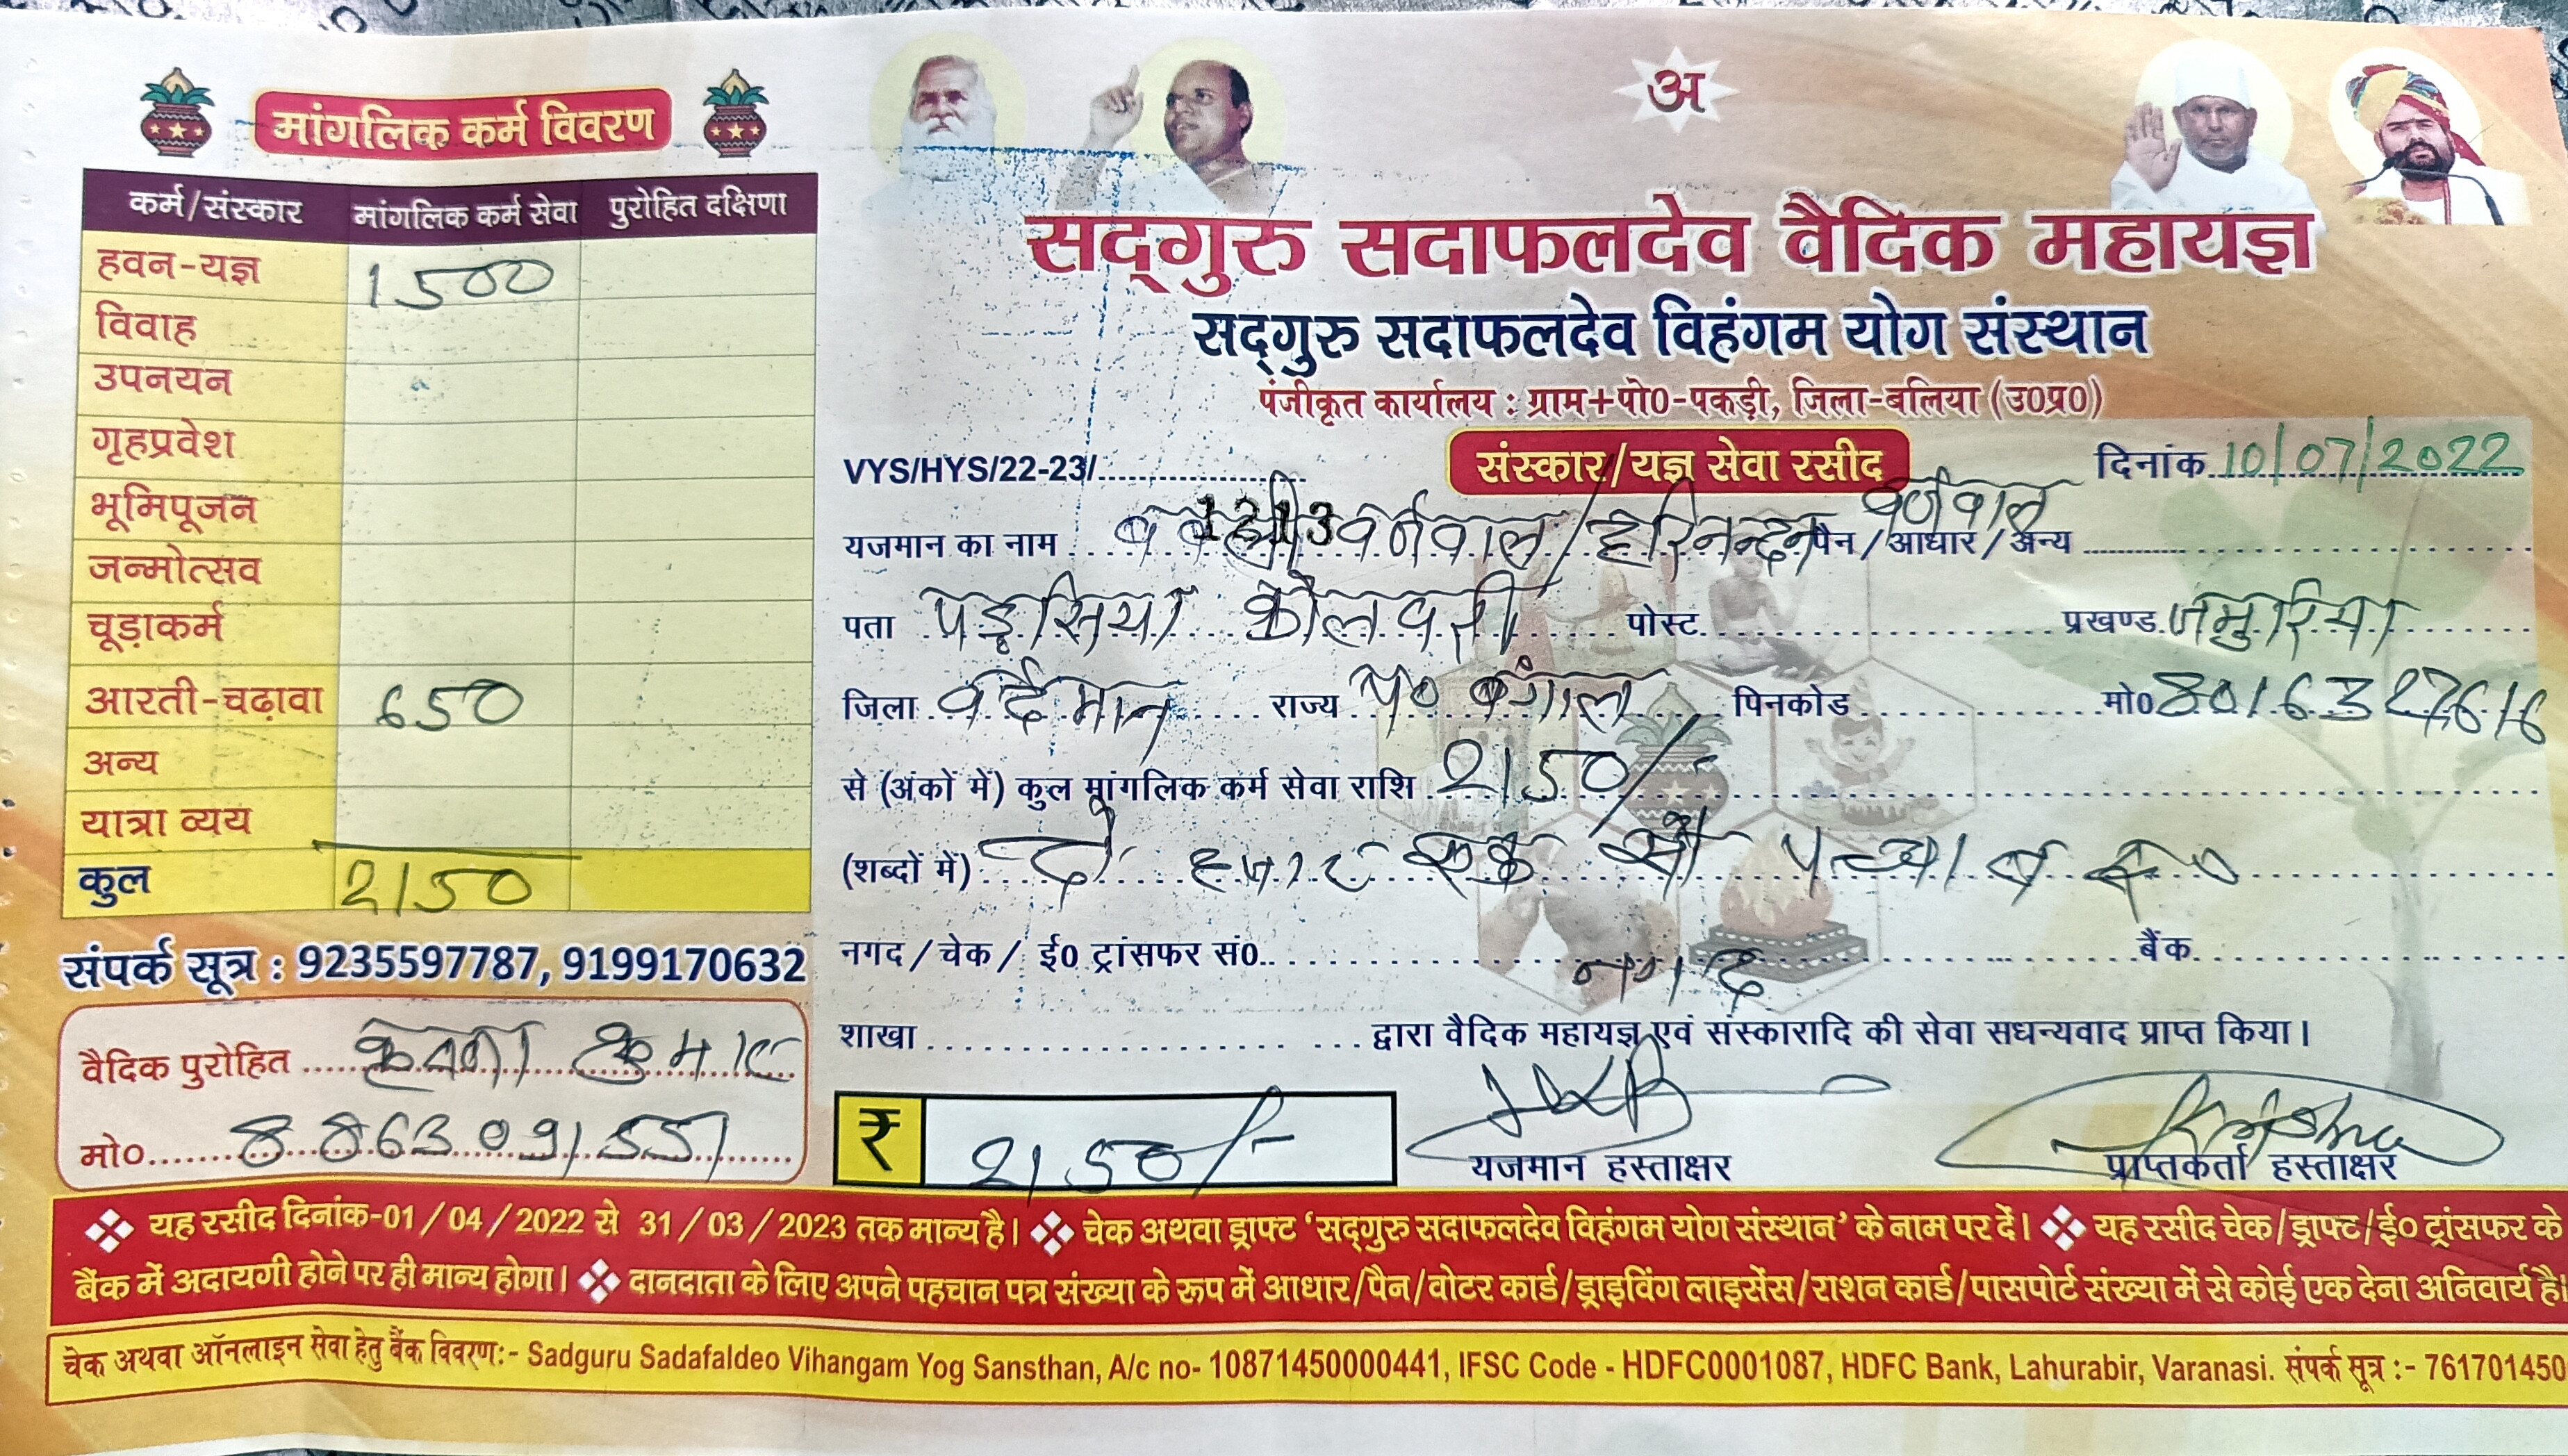 मांगलिक कर्म विवरण
कर्म/संस्कार मांगलिक कर्म सेवा पुरोहित दक्षिणा
हवन-यज्ञ 1500
विवाह
उपनयन
गृहप्रवेश
भूमिपूजन
जन्मोत्सव
चूड़ाकर्म
आरती-चढ़ावा 650
अन्य
यात्रा व्यय
कुल 2150
संपर्क सूत्र : 9235597787, 9199170632
वैदिक पुरोहित कुमार
मो० 8863091551
अ
सद्गुरु सदाफलदेव वैदिक महायज्ञ
सद्गुरु सदाफलदेव विहंगम योग संस्थान
पंजीकृत कार्यालय : ग्राम+पो0-पकड़ी, जिला-बलिया (उ0प्र0)
VYS/HYS/22-23/ 1213 संस्कार/यज्ञ सेवा रसीद दिनांक 10/07/2022
यजमान का नाम वर्नवाल/हरिनन्दन वर्णवाल पैन/आधार/अन्य
पता पोस्ट प्रखण्ड जमुरिया
जिला वर्दमान राज्य प० बंगाल पिनकोड मो०
से (अंकों में) कुल मांगलिक कर्म सेवा राशि 2150/-
(शब्दों में) दो हजार एक सौ पच्चास रू०
नगद/चेक/ ई0 ट्रांसफर सं0. नगद बैंक
शाखा द्वारा वैदिक महायज्ञ एवं संस्कारादि की सेवा सधन्यवाद प्राप्त किया।
₹ 2150/-
यजमान हस्ताक्षर Krishna प्राप्तकर्ता हस्ताक्षर
❖ यह रसीद दिनांक-01/04/2022 से 31/03/2023 तक मान्य है। ❖ चेक अथवा ड्राफ्ट ‘सद्गुरु सदाफलदेव विहंगम योग संस्थान’ के नाम पर दें। ❖ यह रसीद चेक/ड्राफ्ट/ई० ट्रांसफर के
बैंक में अदायगी होने पर ही मान्य होगा। ❖ दानदाता के लिए अपने पहचान पत्र संख्या के रूप में आधार/पैन/वोटर कार्ड/ड्राइविंग लाइसेंस/राशन कार्ड/पासपोर्ट संख्या में से कोई एक देना अनिवार्य है।
चेक अथवा ऑनलाइन सेवा हेतु बैंक विवरण:- Sadguru Sadafaldeo Vihangam Yog Sansthan, A/c no- 10871450000441, IFSC Code - HDFC0001087, HDFC Bank, Lahurabir, Varanasi. संपर्क सूत्र :- 761701450